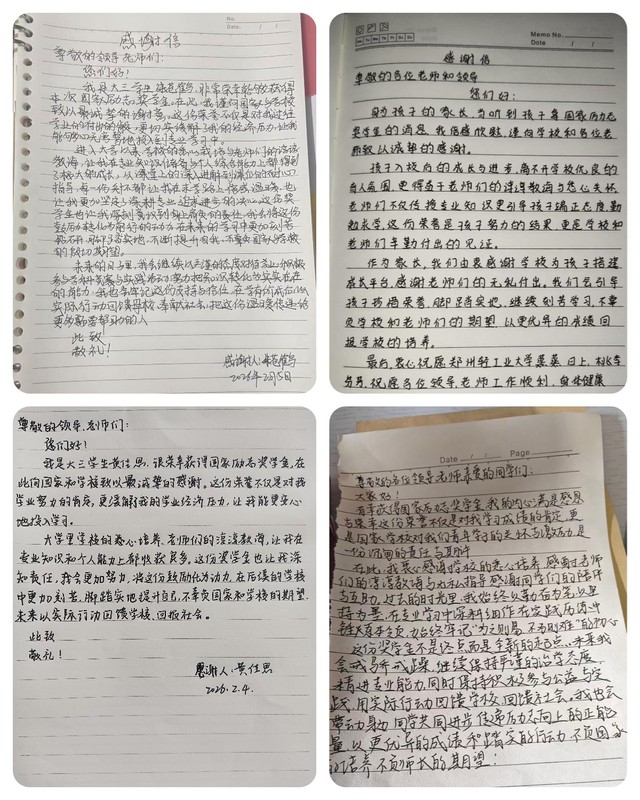 No.
Date
感谢信
尊敬的领导老师们:
您们好!
我是大三学生 非常荣幸能够获得
本次国家励志奖学金,在此,我谨向国家和学校
致以最诚挚的谢意,这份荣誉不仅是对我过往
学业的付出的肯定,更切实缓解了我的经济压力,让我
能够更
进入大学以来学校的悉心
教诲,让我在专业知识储备与个人综合能力上都得到
了极大的成长,从课堂上的深入讲解到课后的耐心
指导,每一份关怀都让我在求学路上倍感温暖,也
让我更加坚定了深耕专业、追求进步的决心,这份奖
学金也让我深刻意识到肩上肩负的责任,我会将这份
鼓励转化为前行的动力在未来的学习中更加刻苦
钻研,脚踏实地,不断提升自我,不辜负国家与学校
的殷切期望。
未来的日子里,我会继续以严谨的态度对待学业,积极
参与学科竞赛与实践
的能力,我也会牢记这份支持与信任,在学有所成后以
实际行动回馈母校、奉献社会,把这份温暖传递给
更多需要帮助的人
此致
敬礼!
感谢人:
2026年2月5日
Memo No.
Mo Tu We Th Fr Sa Su
Date / /
感谢信
尊敬的各位老师和领导
您们好:
身为孩子的家长,当听到孩子荣获国家励志
奖学金的消息,我倍感欣慰,谨向学校和各位老
师致以诚挚的感谢。
孩子入校后的成长与进步,离不开学校优良的
育人氛围,更得益于老师们的谆谆教诲与悉心关怀。
老师们不仅传授专业知识更引导孩子端正态度、勤
勉求学,这份荣誉是孩子努力的结果,更是学校和
老师们辛勤付出的见证。
作为家长,我们由衷感谢学校为孩子搭建
成长平台,感谢老师们的无私付出。我们会引导
孩子珍惜荣誉,脚踏实地,继续刻苦学习,不辜
负学校和老师们的期望,以更优异的成绩回
报学校的培养。
最后,衷心祝愿郑州轻工业大学蒸蒸日上,桃李
芬芳,祝愿各位领导、老师工作顺利,身体健康
尊敬的领导、老师们:
您们好!
我是大三学生黄佳思,很荣幸获得国家励志奖学金,在
此向国家和学校致以最诚挚的感谢。这份荣誉不仅是对我
学业努力的肯定,更缓解了我的学业经济压力,让我能更安心
地投入学习。
大学里学校的悉心培养、老师们的谆谆教诲,让我在
专业知识和个人能力上都收获良多。这份奖学金也让我深
知责任,我会更加努力,将这份鼓励化为动力,在后续的学校
中更加刻苦、脚踏实地提升自己,不辜负国家和学校的期望,
未来以实际行动回馈学校、回报社会。
此致
敬礼!
感谢人:黄佳思
2026.2.4.
Date / / Page
尊敬的各位领导老师亲爱的同学们:
大家好!
有幸获得国家励志奖学金,我的内心满是感恩
与荣幸这份荣誉不仅是对我学习成绩的肯定,更
是国家学校对我们青年学子的关怀与激励,是
一份沉甸的责任与期许
在此,我衷心感谢学校的悉心培养,感谢老师
们的谆谆教诲与无私指导感谢同学们的陪伴
与互助,过去的时光里,我始终以勤奋为先,以坚
持为要,在专业学习中深耕细作在实践历练中
锤炼本领,始终牢记“为之则易,不为则难”的初心
这份奖学金不是终点而是全新的起点,未来我
会戒骄戒躁,继续保持严谨的治学态度
精进专业能力同时保持积极参与公益与实
践,用实际行动回馈学校,回馈社会。我也会
带动身边同学共同进步传递励志向上的正能
量,以更优异的成绩和踏实的行动不负国家
的培养不负师长的期望!